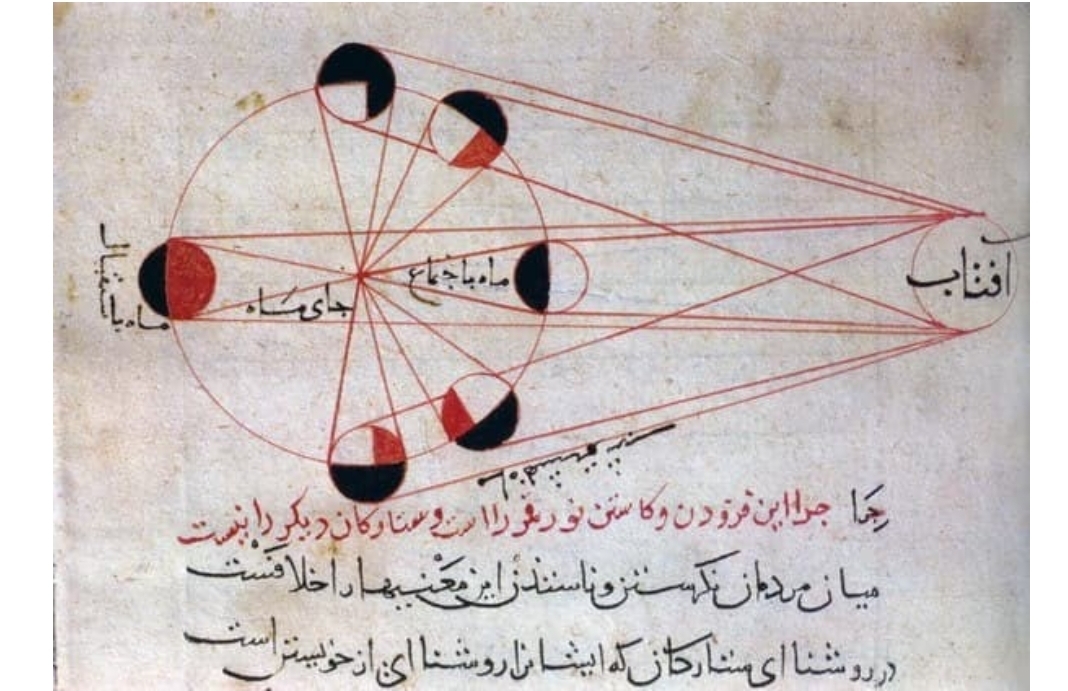 افتاب
ماه باجتماع
جای ماه
ماه باستقبال
چرا این فزودن و کاستن نور قمر را است و ستارکان دیکر را نیست
میان مردمان نکرستن این معنیها را خلافست
در روشنا ای ستارکان که ایشانرا روشنا ای از خویشتن است